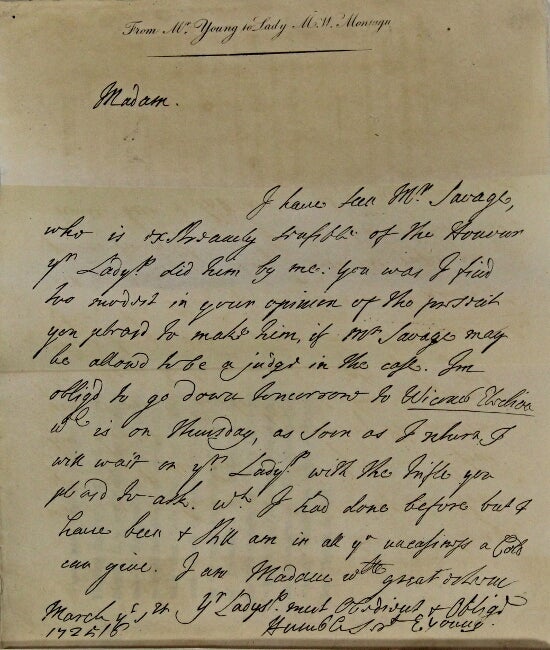 From Mr. Young to Lady M. W. Montagu
Madam.
I have seen Mr. Savage,
who is extreamely sensible of the Honour
yr. Ladysp. did him by me. you was I find
too modest in your opinion of the present
you pleasd to make him, if Mr Savage may
be allowd to be a judge in the case. I'm
obligd to go down tomorrow to Election
wch is on Thursday, as soon as I return I
will wait on yr. Ladysp. with the trifle you
pleasd to ask. wh. I had done before but I
have been & still am in all ye uneasiness a Cold
can give. I am Madam wth great esteem
March ye 1st yr Ladysps. most Obedient & Obligd
1725/6 Humble Sert E Young.